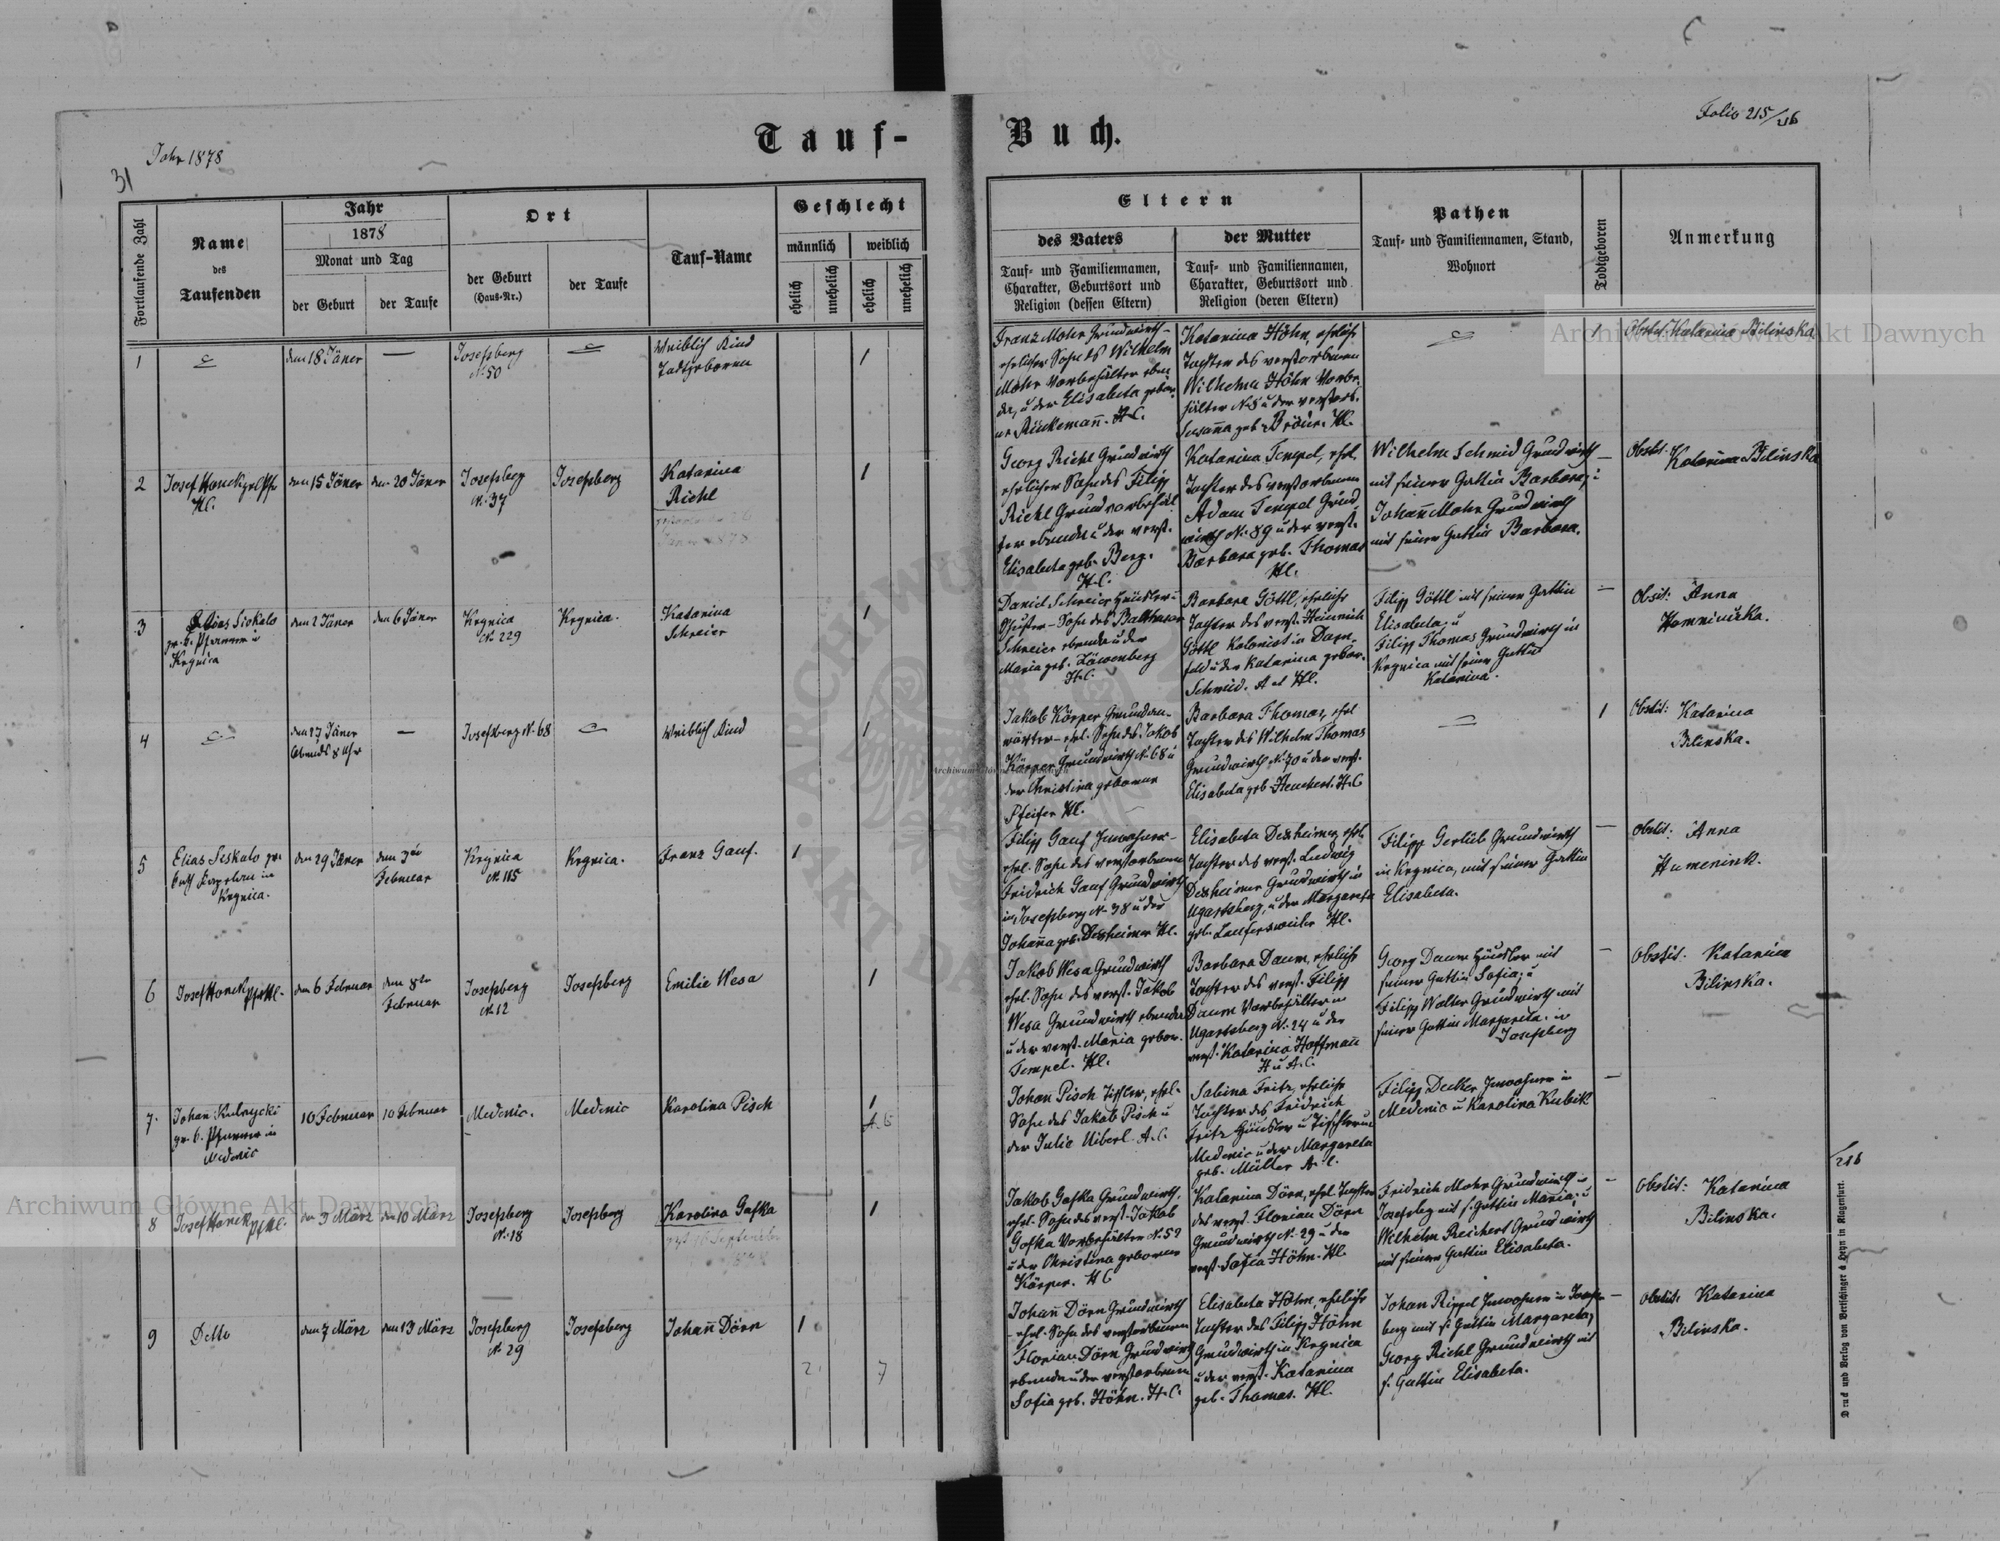 Folio 215/216
Tauf-Buch.
Jahr 1878
31
Fortlaufende Zahl
Name
des
Taufenden
Jahr
1878
Monat und Tag
der Geburt
der Taufe
Ort
der Geburt
(Haus-Nr.)
der Taufe
Tauf-Name
Geschlecht
männlich
weiblich
ehelich
unehelich
ehelich
unehelich
Eltern
des Vaters
Tauf- und Familiennamen,
Charakter, Geburtsort und
Religion (dessen Eltern)
der Mutter
Tauf- und Familiennamen,
Charakter, Geburtsort und
Religion (deren Eltern)
Pathen
Tauf- und Familiennamen, Stand,
Wohnort
Todtgeboren
Anmerkung
1
den 18 Jäner
Josefsberg
N. 50
Weiblich Kind
Todtgeboren
1
Franz Mohr Grundwirth-
ehelicher Sohn des Wilhelm
Mohr Vorbehälter eben
da, u der Elisabeta gebor
H.C.
Katarina Höhn, eheliche
Tochter des verstorbenen
Wilhelm Höhn Vorbe-
hälter N. 8 u der verstorb.
Susanna geb. H.C.
1
Obstet. Katarina Bilinska
2
Josef Hanck
H.C.
den 15 Jäner
den 20 Jäner
Josefsberg
N. 37
Josefsberg
Katarina
Riehl
Jäner 1878
1
Georg Riehl Grundwirth
ehelicher Sohn des Filipp
Riehl Grundvorbehäl
ter ebenda u der verst.
Elisabeta geb. Berg.
H.C.
Katarina Tempel, ehel.
Tochter des verstorbenen
Adam Tempel Grund
wirth N. 89 u der verst.
Barbara geb. Thomas
H.C.
Wilhelm Schmid Grundwirth
mit seiner Gattin Barbara, u
Johann Mohr Grundwirth
mit seiner Gattin Barbara.
—
Obstet.
Katarina Bilinska
3
Elias Siskalo
gr. k. Pfarrer in
Krynica
den 2 Jäner
den 6 Jäner
Krynica
N. 229
Krynica.
Katarina
Schreier
1
Daniel Schreier Häusler u
Schuster - Sohn des Balthasar
Schreier ebenda u der
Maria geb. Löwenberg
H.C.
Barbara Göttl, eheliche
Tochter des verst. Heinrich
Göttl Kolonist in Dorn
feld u der Katarina gebor.
Schmid. A et H.C.
Filipp Göttl mit seiner Gattin
Elisabeta, u
Filipp Thomas Grundwirth in
Krynica mit seiner Gattin
Katarina.
—
Obstit: Anna
4
den 27 Jäner
Abends 8 Uhr
—
Josefsberg N. 68
Weiblich Kind
1
Jakob Körper
ehel. Sohn des Jakob
Körper Grundwirth N. 68 u
der Christina geborene
Pfeifer H.C.
Barbara Thomas, ehel
Tochter des Wilhelm Thomas
Grundwirth N. 70 u der verst.
Elisabeta geb. Henchert. H.C
1
Obstit: Katarina
Bilinska.
5
Elias Siskalo gr.
Krynica.
den 29 Jäner
den 3ten
Februar
Krynica
N. 115
Krynica.
Franz Gauf.
1
Filipp Gauf Inwohner-
ehel. Sohn des verstorbenen
Fridrich Gauf Grundwirth
in Josefsberg N. 38 u der
Johanna geb. Desheimer H.C.
Elisabeta Desheimer, ehel.
Tochter des verst. Ludwig
Desheimer Grundwirth in
Ugartsberg, u der Margareta
geb. Laufersweiler H.C.
Filipp Gerlib Grundwirth
in Krynica, mit seiner Gattin
Elisabeta.
—
Obstit: Anna
Humenink.
6
Josef Hanck
den 6 Februar
den 8ten
Februar
Josefsberg
N. 12
Josefsberg
Emilie Wesa
1
Jakob Wesa Grundwirth
ehel. Sohn des verst. Jakob
Wesa Grundwirth ebenda
u der verst. Maria gebor.
Tempel. H.C.
Barbara Daum, eheliche
Tochter des verst. Filipp
Daum Vorbehälter in
Ugartsberg N. 24 u der
verst. Katarina Hoffmann
H u A.C.
Georg Daum Häusler mit
seiner Gattin Sofia; u
Filipp Walter Grundwirth mit
seiner Gattin Margareta. in
Josefsberg
—
Obstit. Katarina
Bilinska.
7.
Johan Kulnycki
gr. k. Pfarrer in
Medenic
10 Februar
10 Februar
Medenic.
Medenic
Karolina Pisch
1
Johan Pisch Tischler, ehel-
Sohn des Jakob Pisch u
der Julie Uiberl. A.C.
Sabina Fritz, eheliche
Tochter des Fridrich
Fritz Häusler u Tischler in
Medenic u der Margareta
geb. Müller A.C.
Filipp Decker Inwohner in
Medenic u Karolina Kubik
—
8
Josef Hanck
den 3 März
den 10 März
Josefsberg
N. 18
Josefsberg
Karolina Gafka
1
Jakob Gafka Grundwirth,
ehel. Sohn des verst. Jakob
Gafka Vorbehälter N. 52
u der Christina geborene
Körper. H C
Katarina Dörn, ehel. Tochter
des verst. Florian Dörn
Grundwirth N. 29 u der
verst. Sofia Höhn. H.C.
Fridrich Mohr Grundwirth in
Josefsberg mit s. Gattin Maria; u
Wilhelm Reichert Grundwirth
mit seiner Gattin Elisabeta.
—
Obstit: Katarina
Bilinska.
9
Detto
den 7 März
den 13 März
Josefsberg
N. 29
Josefsberg
Johann Dörn
1
2
7
Johann Dörn Grundwirth
- ehel. Sohn des verstorbenen
Florian Dörn Grundwirth
ebenda u der verstorbenen
Sofia geb. Höhn. H.C.
Elisabeta Höhn, eheliche
Tochter des Filipp Höhn
Grundwirth in Krynica
u der verst. Katarina
geb. Thomas. H.C.
Johan Rippel Inwohner in Josefs-
berg mit s. Gattin Margareta,
Georg Riehl Grundwirth mit
s. Gattin Elisabeta.
—
Obstit: Katarina
Bilinska.
216
Druck und Verlag von Bertschinger & Heyn in Klagenfurt.
Archiwum Główne Akt Dawnych
Archiwum Główne Akt Dawnych
Archiwum Główne Akt Dawnych